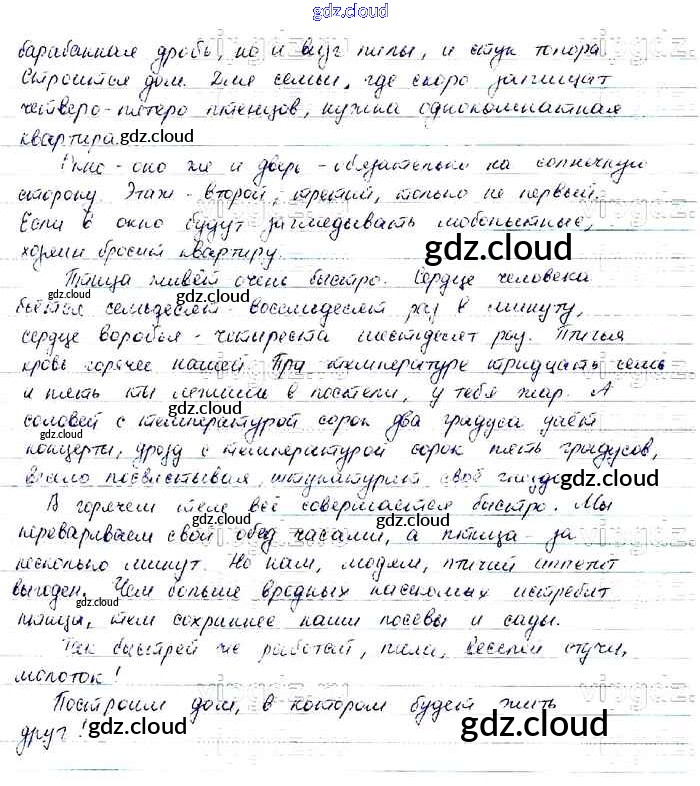 gdz.cloud
барабанная дробь, но и визг пилы, и стук топора
Строится дом. Для семьи, где скоро запищат
четверо-пятеро птенцов, нужна однокомнатная
квартира.
gdz.cloud
Окно - оно же и дверь - обязательно на солнечную
сторону. Этаж - второй, третий, только не первый.
Если в окно будут заглядывать любопытные,
хозяин бросит квартиру.
gdz.cloud
Птица живёт очень быстро. Сердце человека
gdz.cloud gdz.cloud
бьётся семьдесят - восемьдесят раз в минуту,
сердце воробья - четыреста шестьдесят раз. Птичья
кровь горячее нашей. При температуре тридцать семь
и пять ты лежишь в постели, у тебя жар. А
gdz.cloud
соловей с температурой сорок два градуса даёт
gdz.cloud
концерты, дрозд с температурой сорок пять градусов,
весело посвистывая, штукатурит своё гнездо.
gdz.cloud gdz.cloud
В горячем теле всё совершается быстро. Мы
gdz.cloud gdz.cloud
перевариваем свой обед часами, а птица - за
несколько минут. Но нам, людям, птичий аппетит
выгоден. Чем больше вредных насекомых истребят
gdz.cloud
птицы, тем сохраннее наши посевы и сады.
Так быстрей же работай, пила, веселей стучи,
молоток!
Построим дом, в котором будет жить
друг!
gdz.cloud gdz.cloud